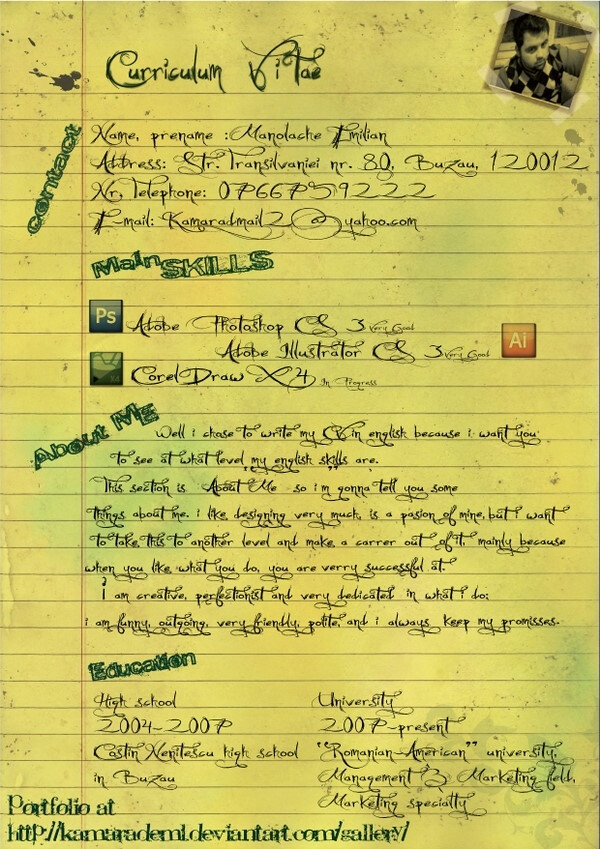 Curriculum Vitae
contact
Name, prename : Manolache Emilian
Address: Str. Transilvaniei nr. 80, Buzau, 120012
Nr. Telephone: 0766759222
E-mail: Kamaradmail20@yahoo.com
Main SKILLS
Ps Adobe Photoshop CS 3 Very Good
Adobe Illustrator CS 3 Very Good Ai
Corel Draw X4 In Progress
About ME
Well i chose to write my CV in english because i want you
to see at what level my english skills are.
This section is "About Me" so i'm gonna tell you some
things about me. i like designing very much, is a pasion of mine, but i want
to take this to another level and make a carrer out of it, mainly because
when you like what you do, you are verry successful at.
I am creative, perfectionist and very dedicated in what i do;
i am funny, outgoing, very friendly, polite, and i always keep my promisses.
Education
High school University
2004-2007 2007-present
Costin Nenitescu high school "Romanian-American" university,
in Buzau Management & Marketing field,
Marketing specialty
Portfolio at
http://kamarademl.deviantart.com/gallery/